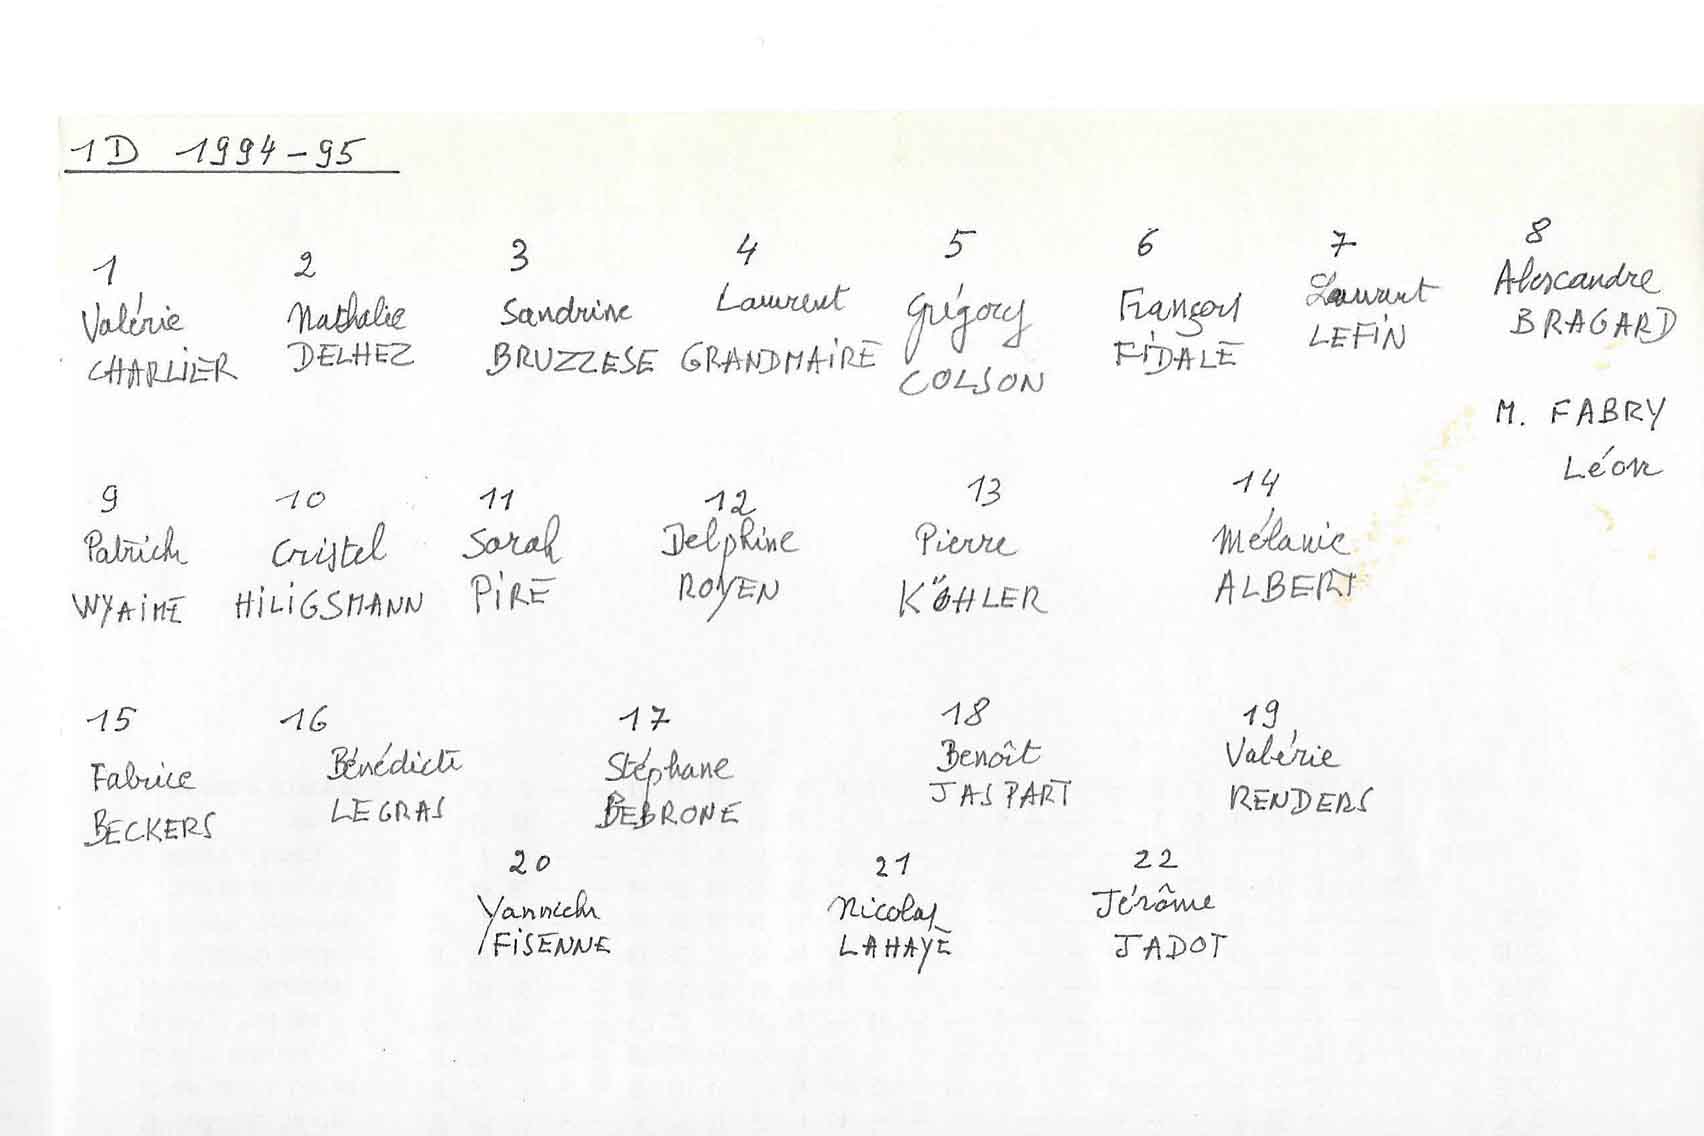 1D 1994-95
1 2 3 4 5 6 7 8
Valérie Nathalie Sandrine Laurent Grégory François Laurent Alexandre
CHARLIER DELHEZ BRUZZESE GRANDMAIRE COLSON FIDALE LEFIN BRAGARD
M. FABRY
Léon
9 10 11 12 13 14
Patrick Cristel Sarah Delphine Pierre Mélanie
WYAIME HILIGSMANN PIRE ROYEN KÖHLER ALBERT
15 16 17 18 19
Fabrice Bénédicte Stéphane Benoît Valérie
BECKERS LEGRAS BEBRONE JASPART RENDERS
20 21 22
Yannick Nicolas Jérôme
FISENNE LAHAYE JADOT